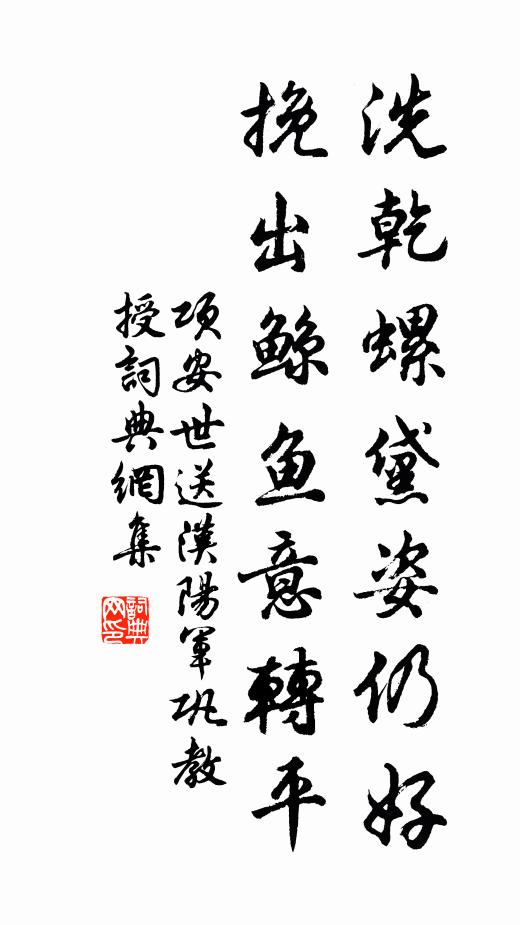 洗乾螺黛姿仍好
挽出鲸鱼意轉平
項安世送漢陽軍巩教
授詞典網集
詞典
网印